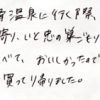 温泉に行く際、
寄り、いと忠の巣ごもり
べて、おいしかったので
買って帰りました。